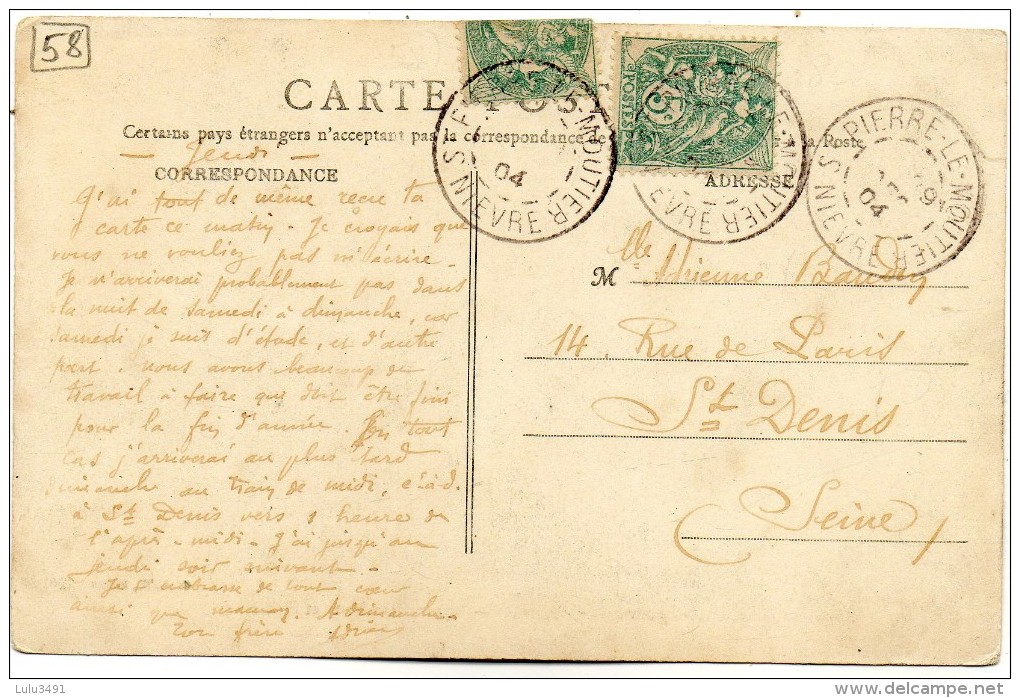 58
CARTE POS
Certains pays étrangers n'acceptant pas la correspondance de la Poste
— Jeudi —
CORRESPONDANCE
J'ai tout de même reçu ta
carte ce matin. Je croyais que
vous ne vouliez pas m'écrire.
Je n'arriverai probablement pas dans
la nuit de samedi à dimanche, car
samedi je suis d'étude, et d'autre
part, nous avons beaucoup de
travail à faire que doit être fini
pour la fin d'année. En tout
cas j'arriverai au plus tard
dimanche au train de midi, c.à.d.
à St Denis vers 1 heure de
l'après-midi. J'ai jusqu'au
jeudi soir suivant.
Je t'embrasse de tout cœur
ainsi que maman. A dimanche.
Ton frère Adrien
POSTES
5
ST PIERRE-LE-MOUTIER
NIEVRE
04
ADRESSE
M lle Adrienne Baudry
14, Rue de Paris
St Denis
Seine
Lulu3491
delcampe.net